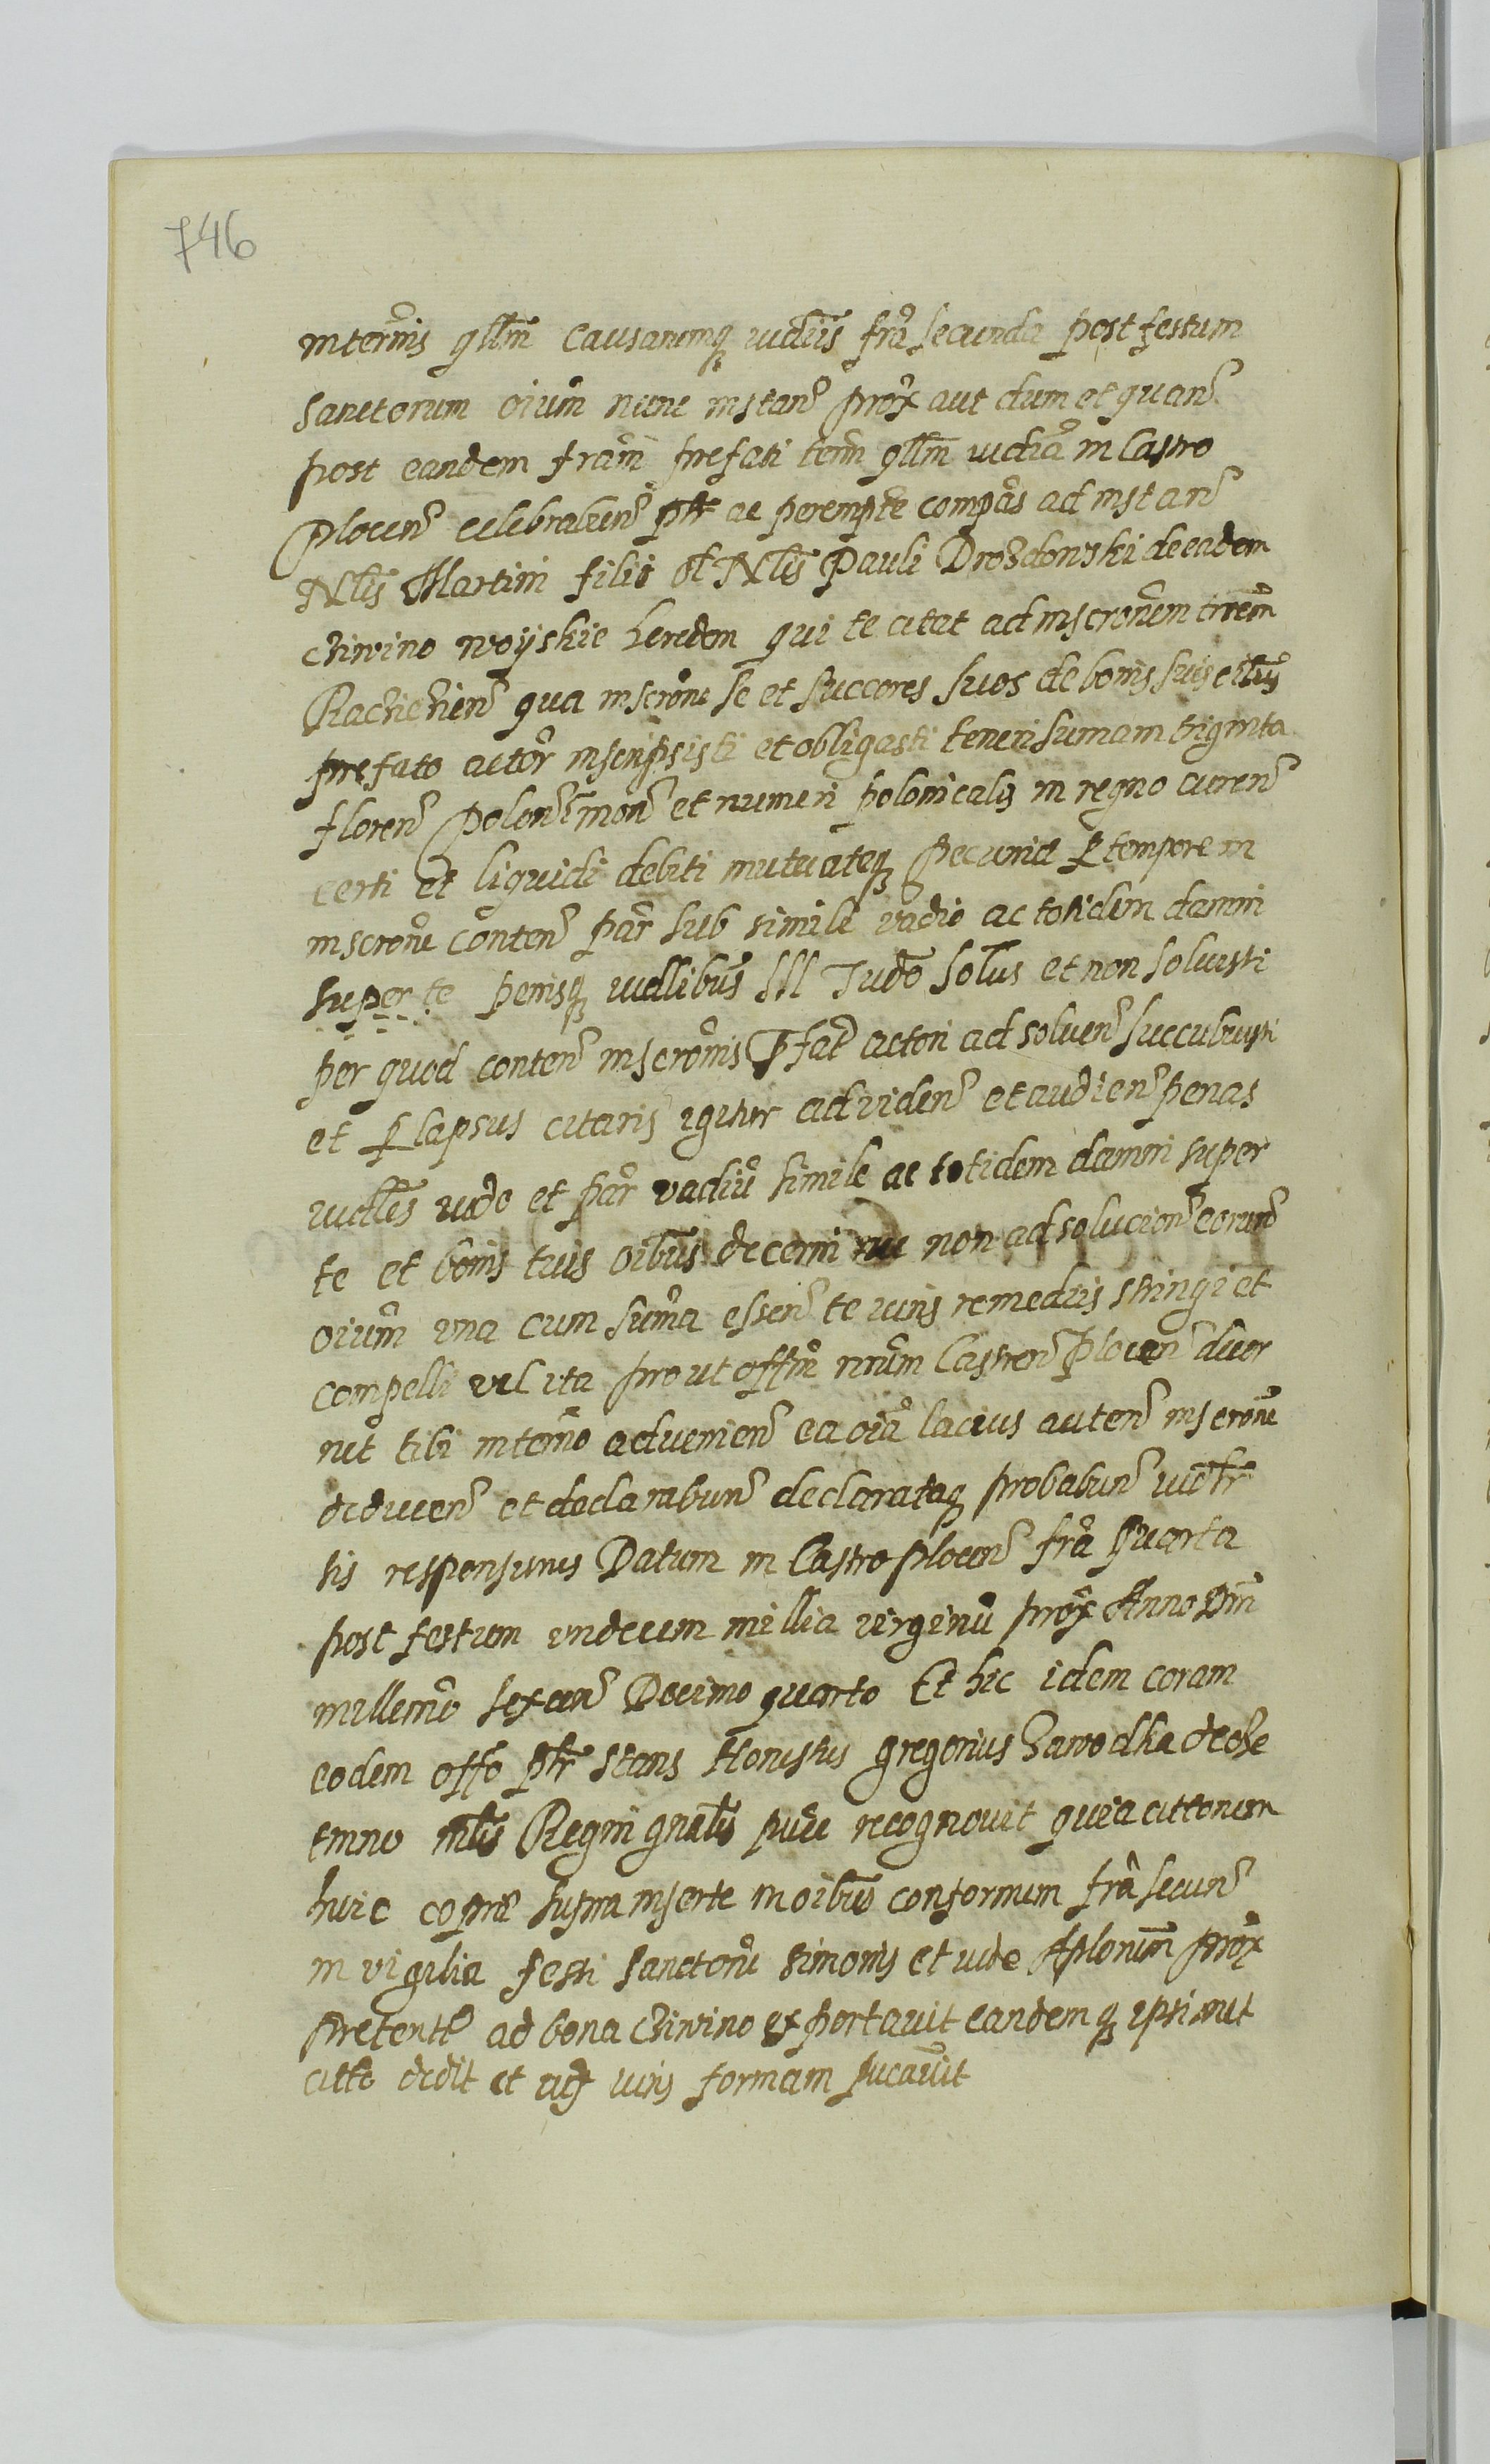 746
in termis gllm Causarumq iudiis fra secunda post festum
Sanctorum oium nunc instan prox aut dum et quan
post eandem fram prefati term gllm iudia in Castro
Plocen celebrabun ptr ac perempte compas ad instan
Nlis Martini filii ol Nlis Pauli Drozdowski de eadem
Chivino woyskie heredem qui te citat ad inscronem
qua inscrone se et succores suos de bonis suis oibus
prefato actor inscripsisti et obligasti teneri sumam triginta
floren Polon mon et numeri polonicalis in regno curen
certi et liquidi debiti mutuateq pecuniae p tempore in
inscrone conten par sub simile vadio ac totidem damni
super te penisq iudlibus Ill Judo Solus et non solvisti
per quod conten inscronis pfat actori ad soluen succubuisti
et p lapsus citaris igitur ad viden et audien penas
iudles iudo et par vadiu simile ac totidem damni super
te et bonis tuis oibus decerni nec non ad solucion eorum
oium una cum suma essen te iuris remediis stringi et
compelli vel ita prout offm nrum Castren Plocen duxe
rit tibi in termo advenien ea oia lacius auten inscrone
deducen et declarabun declarataq probabun iudtr
sis responsurus Datum in Castro plocen fra Quarta
post festum undecem millia virginu prox Anno Dni
millemo sexcen Decimo quarto Et hic idem coram
eodem offo ptr stans Honestus gregorius Zawodka de
mlis Regni gnalis puce recognovit quia cittonem
huic copia supra inserte in oibus conformem fra secun
in vigilia festi Sanctoru Simonis et iude Aplorum prox
preterite ad bona Chivino exportavit eandemq ipsi mit
citto dedit et aq iuris formam pucavit